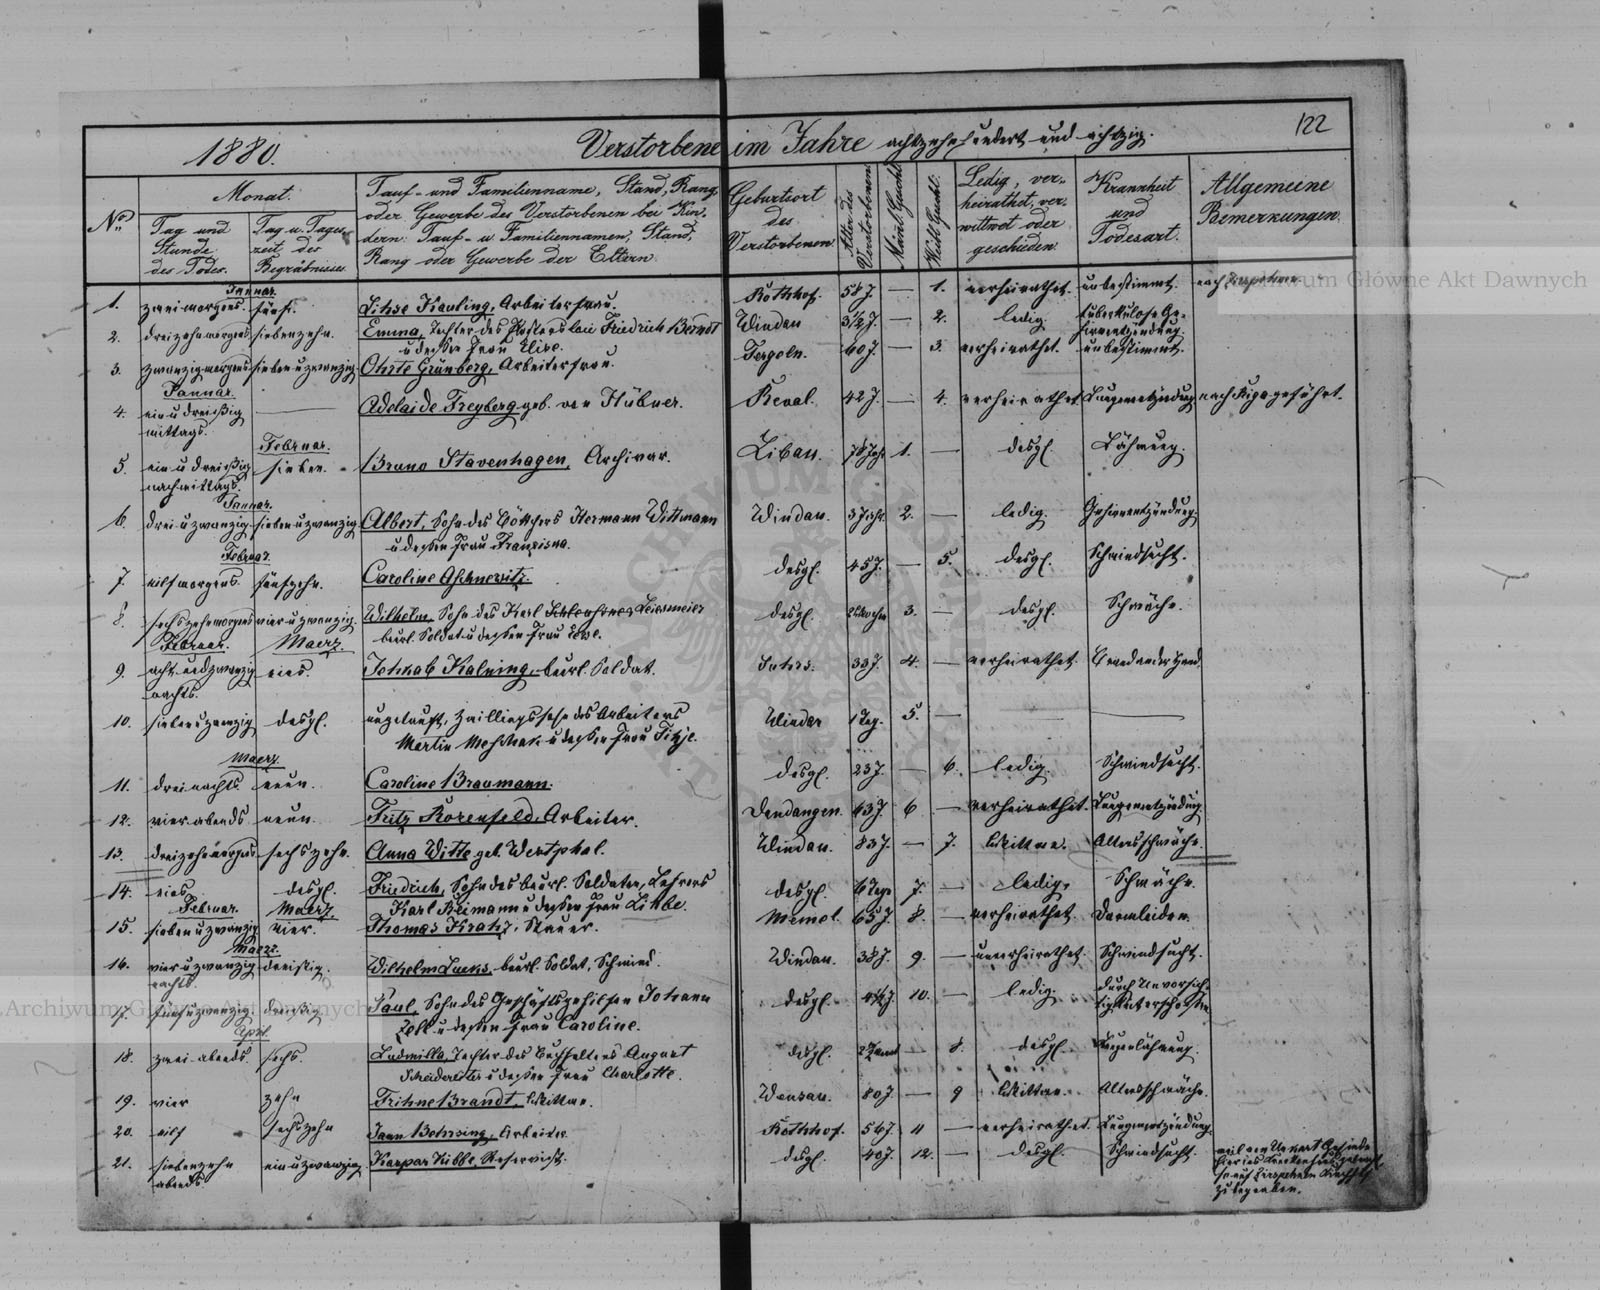 122
1880.
Verstorbene im Jahre achtzehnhundert und achtzig.
No.
Monat.
Tag und Stunde des Todes.
Tag u. Tageszeit des Begräbnisses
Tauf- und Familienname, Stand, Rang
oder Gewerbe des Verstorbenen bei Kin-
dern: Tauf- u. Familiennamen, Stand,
Rang oder Gewerbe der Eltern.
Geburtsort des Verstorbenen
Alter des Verstorbenen
Männl. Geschl.
Weibl. Geschl.
Ledig, ver-
heirathet, ver-
wittwet oder
geschieden.
Krankheit
und
Todesart.
Allgemeine
Bemerkungen.
Januar.
1. zwei morgens. fünf. Lihse Kauling, Arbeitersfrau. Rothhof. 58 J. — 1. verheirathet. unbestimmt. nach
2. dreizehn morgens siebenzehn. Emma, Tochter des Friedrich Berndt Windau 3 1/2 J. — 2. ledig. tuberkulose Ge-
u dessen Frau Elise. hirnentzündung.
3. zwanzig morgens sieben u zwanzig. Ohrte Grünberg, Arbeitersfrau. 60 J. — 3. verheirathet. unbestimmt.
Januar.
4. ein u dreißig — Adelaide Freyberg geb. von Hübner. Reval. 42 J. — 4. verheirathet Lungenentzündung nach Riga geführt.
mittags.
Februar.
5. ein u dreißig sieben. Bruno Stavenhagen, Archivar. Libau. 78 Jahr 1. — desgl. Lähmung.
nachmittags.
Januar.
6. drei u zwanzig sieben u zwanzig Albert, Sohn des Böttchers Herman Wittmann Windau. 3 Jahr. 2. — ledig. Gehirnentzündung.
u dessen Frau
Februar.
7. eilf morgens. fünfzehn. Caroline desgl. 45 J. — 5. desgl. Schwindsucht.
8. sechszehn morgens vier u zwanzig. Wilhelm, Sohn des Karl desgl. 3. — desgl. Schwäche.
beurl. Soldat u dessen Frau
Februar. Maerz.
9. acht und zwanzig eins. Jehkab Kalning, beurl. Soldat. 33 J. 4. — verheirathet
nachts.
10. sieben u zwanzig desgl. ungetauft, Zwillingssohn des Arbeiters Windau 1 Tag. 5. — — —
Martin u dessen Frau
Maerz.
11. drei nachts. neun. Caroline Braumann. desgl. 23 J. — 6. ledig. Schwindsucht.
12. vier abends neun. Fritz Korenfeld, Arbeiter. Dondangen. 63 J. 6 — verheirathet. Lungenentzündung
13. dreizehn morgens sechszehn. Anna Witte geb. Westphal. Windau. 83 J. — 7. Wittwe. Altersschwäche.
14. eins desgl. Friedrich, Sohn des beurl. Soldaten, Lehrers desgl. 6 Tage 7. — ledig. Schwäche.
Karl Reimann u dessen Frau Lihbe.
Februar. Maerz.
15. sieben u zwanzig vier. Thomas Krahz, Stauer. Memel. 65 J. 8. — verheirathet. Darmleiden.
Maerz.
16. vier u zwanzig dreißig. Wilhelm beurl. Soldat, Schmied. Windau. 38 J. 9. — unverheirathet. Schwindsucht.
nachts.
17. fünf u zwanzig. dreißig Paul, Sohn des Geschäftsgehilfen Johann desgl. 10. — ledig. durch Unvorsich-
u dessen Frau Caroline.
April.
18. zwei abends. sechs. Ludmilla, Tochter des Buchhalters August desgl. — 8. desgl. Lungenlähmung.
u dessen Frau Charlotte.
19. vier zehn Trihne Brandt, Wittwe. Wensau. 80 J. — 9 Wittwe. Altersschwäche.
20. eilf sechszehn Jann Behrsing, Arbeiter Rothhof. 56 J. 11 — verheirathet. Lungenentzündung.
21. siebenzehn ein u zwanzig. Kaspar Kibbe, Reservist. desgl. 40 J. 12. — desgl. Schwindsucht.
abends
zu begraben.
Archiwum Główne Akt Dawnych
Archiwum Główne Akt Dawnych